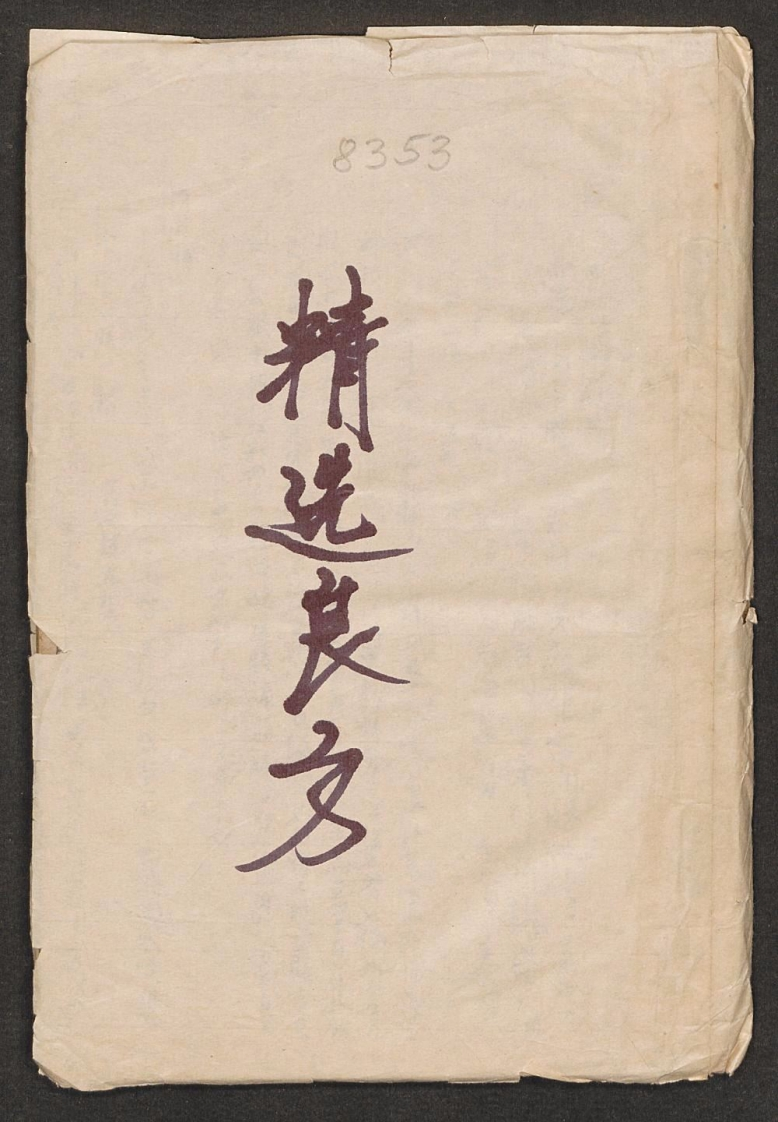 8353
精选良方